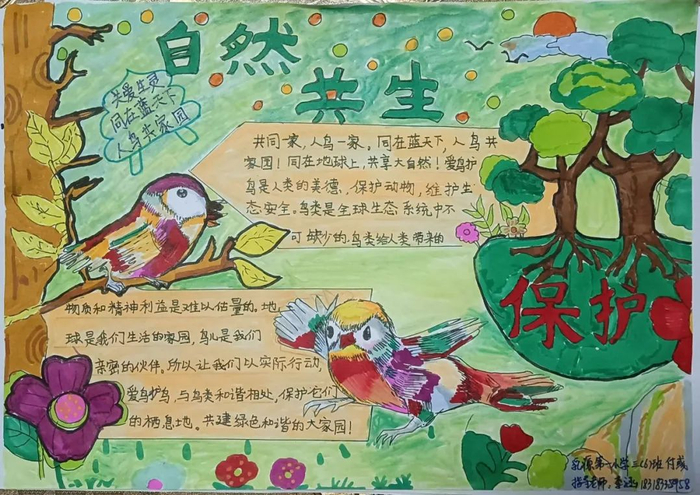 自然
共生
共爱生灵
同在蓝天下
人鸟共家园
共同一家,人鸟一家。同在蓝天下,人鸟共
家园!同在地球上,共享大自然!爱鸟护
鸟是人类的美德、保护动物,维护生
态安全。鸟类是全球生态系统中不
可缺少的.鸟类给人类带来的
物质和精神利益是难以估量的。地
球是我们生活的家园,鸟儿是我们
亲密的伙伴。所以让我们以实际行动,
爱鸟护鸟,与鸟类和谐相处,保护它们
的栖息地。共建绿色和谐的大家园!
保护
第一小学三(6)班
指导老师: